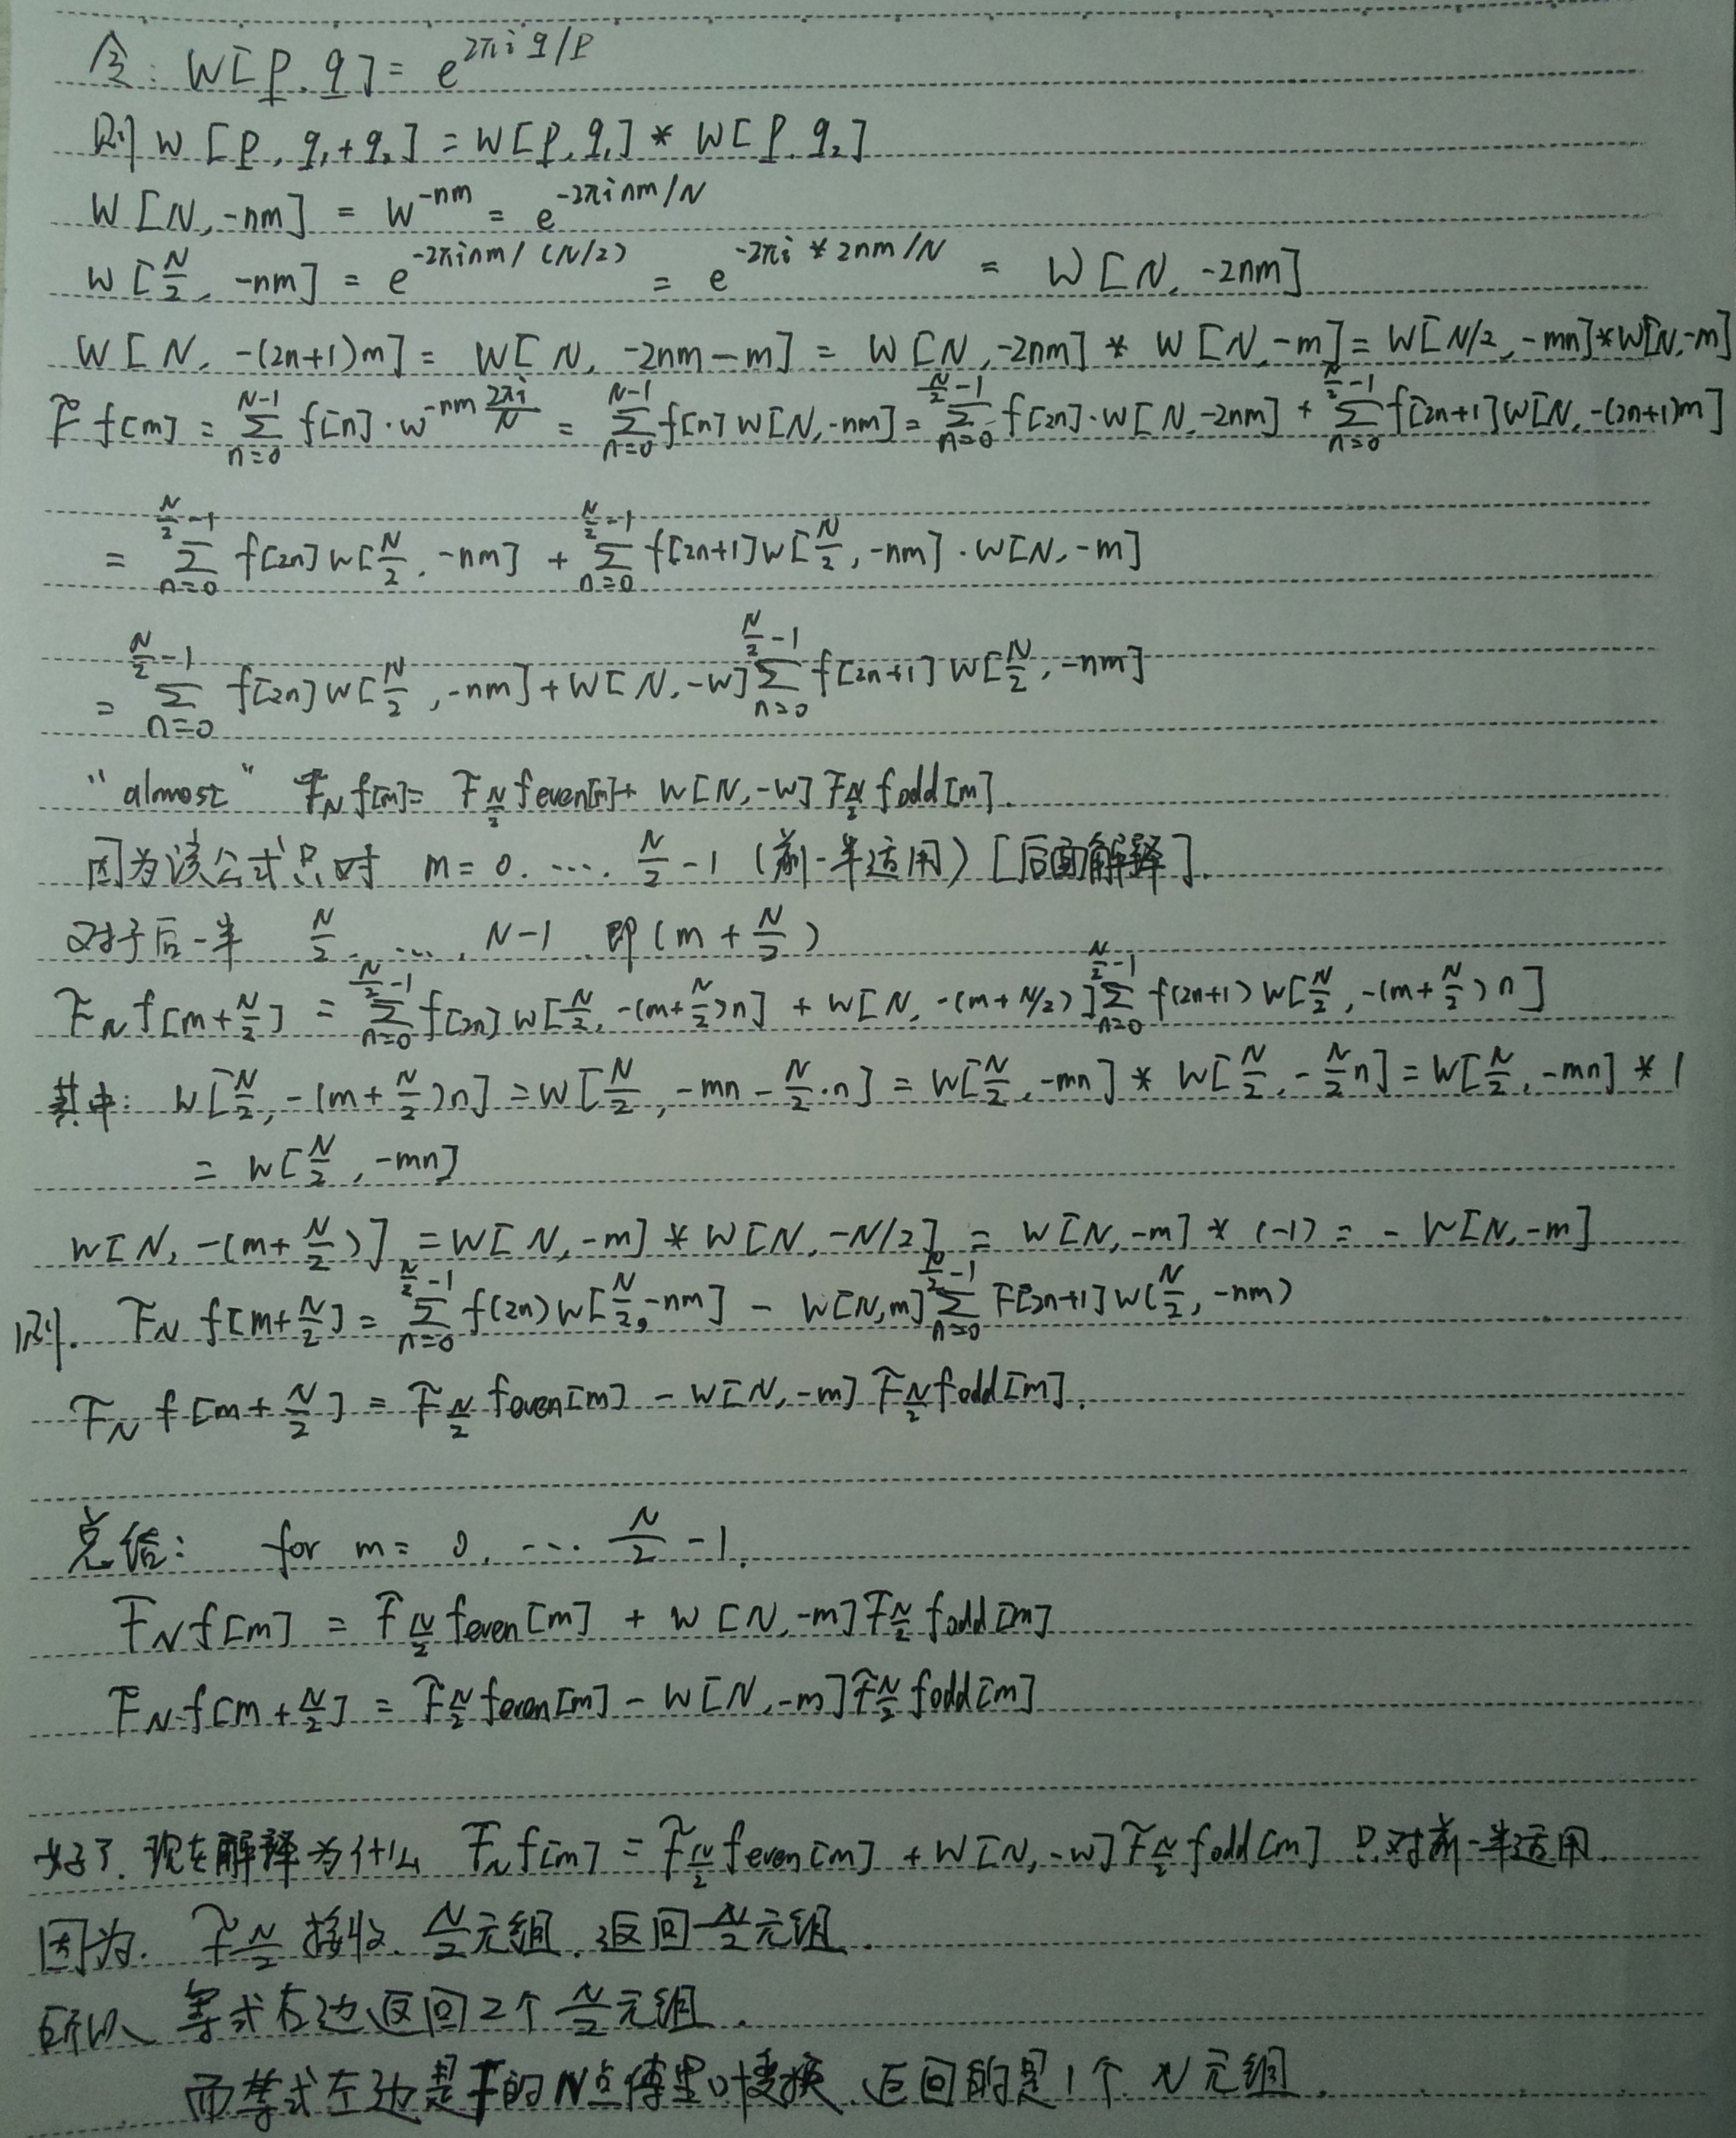 令: W[p, q] = e^{2πi q/p}
则 W [p, q₁+q₂] = W[p, q₁] * W[p, q₂]
W [N, -nm] = W^{-nm} = e^{-2πinm/N}
W [N/2, -nm] = e^{-2πinm/(N/2)} = e^{-2πi * 2nm/N} = W [N, -2nm]
W [N, -(2n+1)m] = W[N, -2nm-m] = W [N, -2nm] * W [N, -m] = W[N/2, -mn]*W[N,-m]
F f[m] = ∑_{n=0}^{N-1} f[n]·w^{-nm 2πi/N} = ∑_{n=0}^{N-1} f[n] W[N, -nm] = ∑_{n=0}^{N/2-1} f[2n]·W[N, -2nm] + ∑_{n=0}^{N/2-1} f[2n+1]W[N, -(2n+1)m]
= ∑_{n=0}^{N/2-1} f[2n] W[N/2, -nm] + ∑_{n=0}^{N/2-1} f[2n+1] W[N/2, -nm]·W[N, -m]
= ∑_{n=0}^{N/2-1} f[2n] W[N/2, -nm] + W[N, -w] ∑_{n=0}^{N/2-1} f[2n+1] W[N/2, -nm]
"almost" F_N f[m] = F_{N/2} f even[m] + W[N, -w] F_{N/2} f odd[m].
因为该公式只对 m = 0. .... N/2 -1 (前一半适用) [后面解释].
对于后一半 N/2, ...., N-1, 即(m + N/2)
F_N f[m+N/2] = ∑_{n=0}^{N/2-1} f[2n] W[N/2, -(m+N/2)n] + W[N, -(m+N/2)] ∑_{n=0}^{N/2-1} f(2n+1) W[N/2, -(m+N/2)n]
其中: W[N/2, -(m+N/2)n] = W[N/2, -mn - N/2·n] = W[N/2, -mn] * W[N/2, -N/2 n] = W[N/2, -mn] * 1
= W[N/2, -mn]
W[N, -(m+N/2)] = W[N, -m] * W[N, -N/2] = W[N, -m] * (-1) = - W[N, -m]
则. F_N f[m+N/2] = ∑_{n=0}^{N/2-1} f(2n) W[N/2, -nm] - W[N,m] ∑_{n=0}^{N/2-1} F[2n+1] W(N/2, -nm)
F_N f[m+N/2] = F_{N/2} f even[m] - W[N, -m] F_{N/2} f odd[m].
总结: for m = 0. ... N/2 -1.
F_N f[m] = F_{N/2} f even[m] + W [N, -m] F_{N/2} f odd[m]
F_N f[m+N/2] = F_{N/2} f even[m] - W[N, -m] F_{N/2} f odd[m]
好了. 现在解释为什么 F_N f[m] = F_{N/2} f even[m] + W[N, -w] F_{N/2} f odd[m] 只对前一半适用.
因为. F_{N/2} 接收 N/2元组. 返回 N/2元组.
所以 等式右边返回2个 N/2元组.
而等式左边是F的N点傅里叶变换. 返回的是1个 N元组.